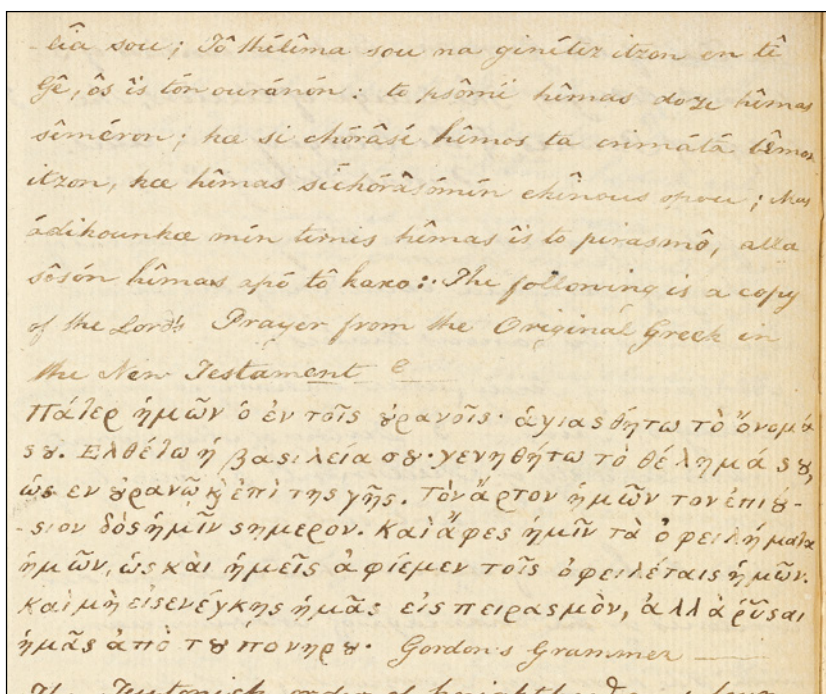 -eia sou; Tô thélêma sou na ginétez itzon en tê
Gê, ôs îs tón ouránón: to psômi hêmas doze hêmas
sêméron; kæ si chórâsé hêmos ta crimátá hêmon
itzon, kæ hêmas sichórâsómin ekînous opou; Mas
ádikounkæ mín ternis hêmas îs to pirasmô, alla
sôsón hêmas apó tô kaxo:· The following is a copy
of the Lord's Prayer from the Original Greek in
the New Testament
Πάτερ ἡμῶν ὁ ἐν τοῖς ȣρανοῖς· ἁγιασθήτω τὸ ὄνομά
σȣ. Ελθέτω ἡ βασιλεια σȣ· γενηθήτω τὸ θέλημά σȣ,
ὡς εν ȣρανῷ ϗ ἐπὶ της γῆς. Τὸν ἄρτον ἡμῶν τον ἐπιȣ-
-σιον δὸς ἡμῖν σημερον. Καὶ ἄφες ἡμῖν τὰ ὀφειλήματα
ἡμῶν, ὡς κὰι ἡμεῖς ἀφίεμεν τοῖς ὀφειλέταις ἡμῶν.
Καὶ μὴ εἰσενέγκης ἡμᾶς εἰς πειρασμὸν, ἀλλὰ ῥῦσαι
ἡμᾶς ἀπὸ τȣ πονηρȣ· Gordon's Grammer
The Teutonick order of knighthood